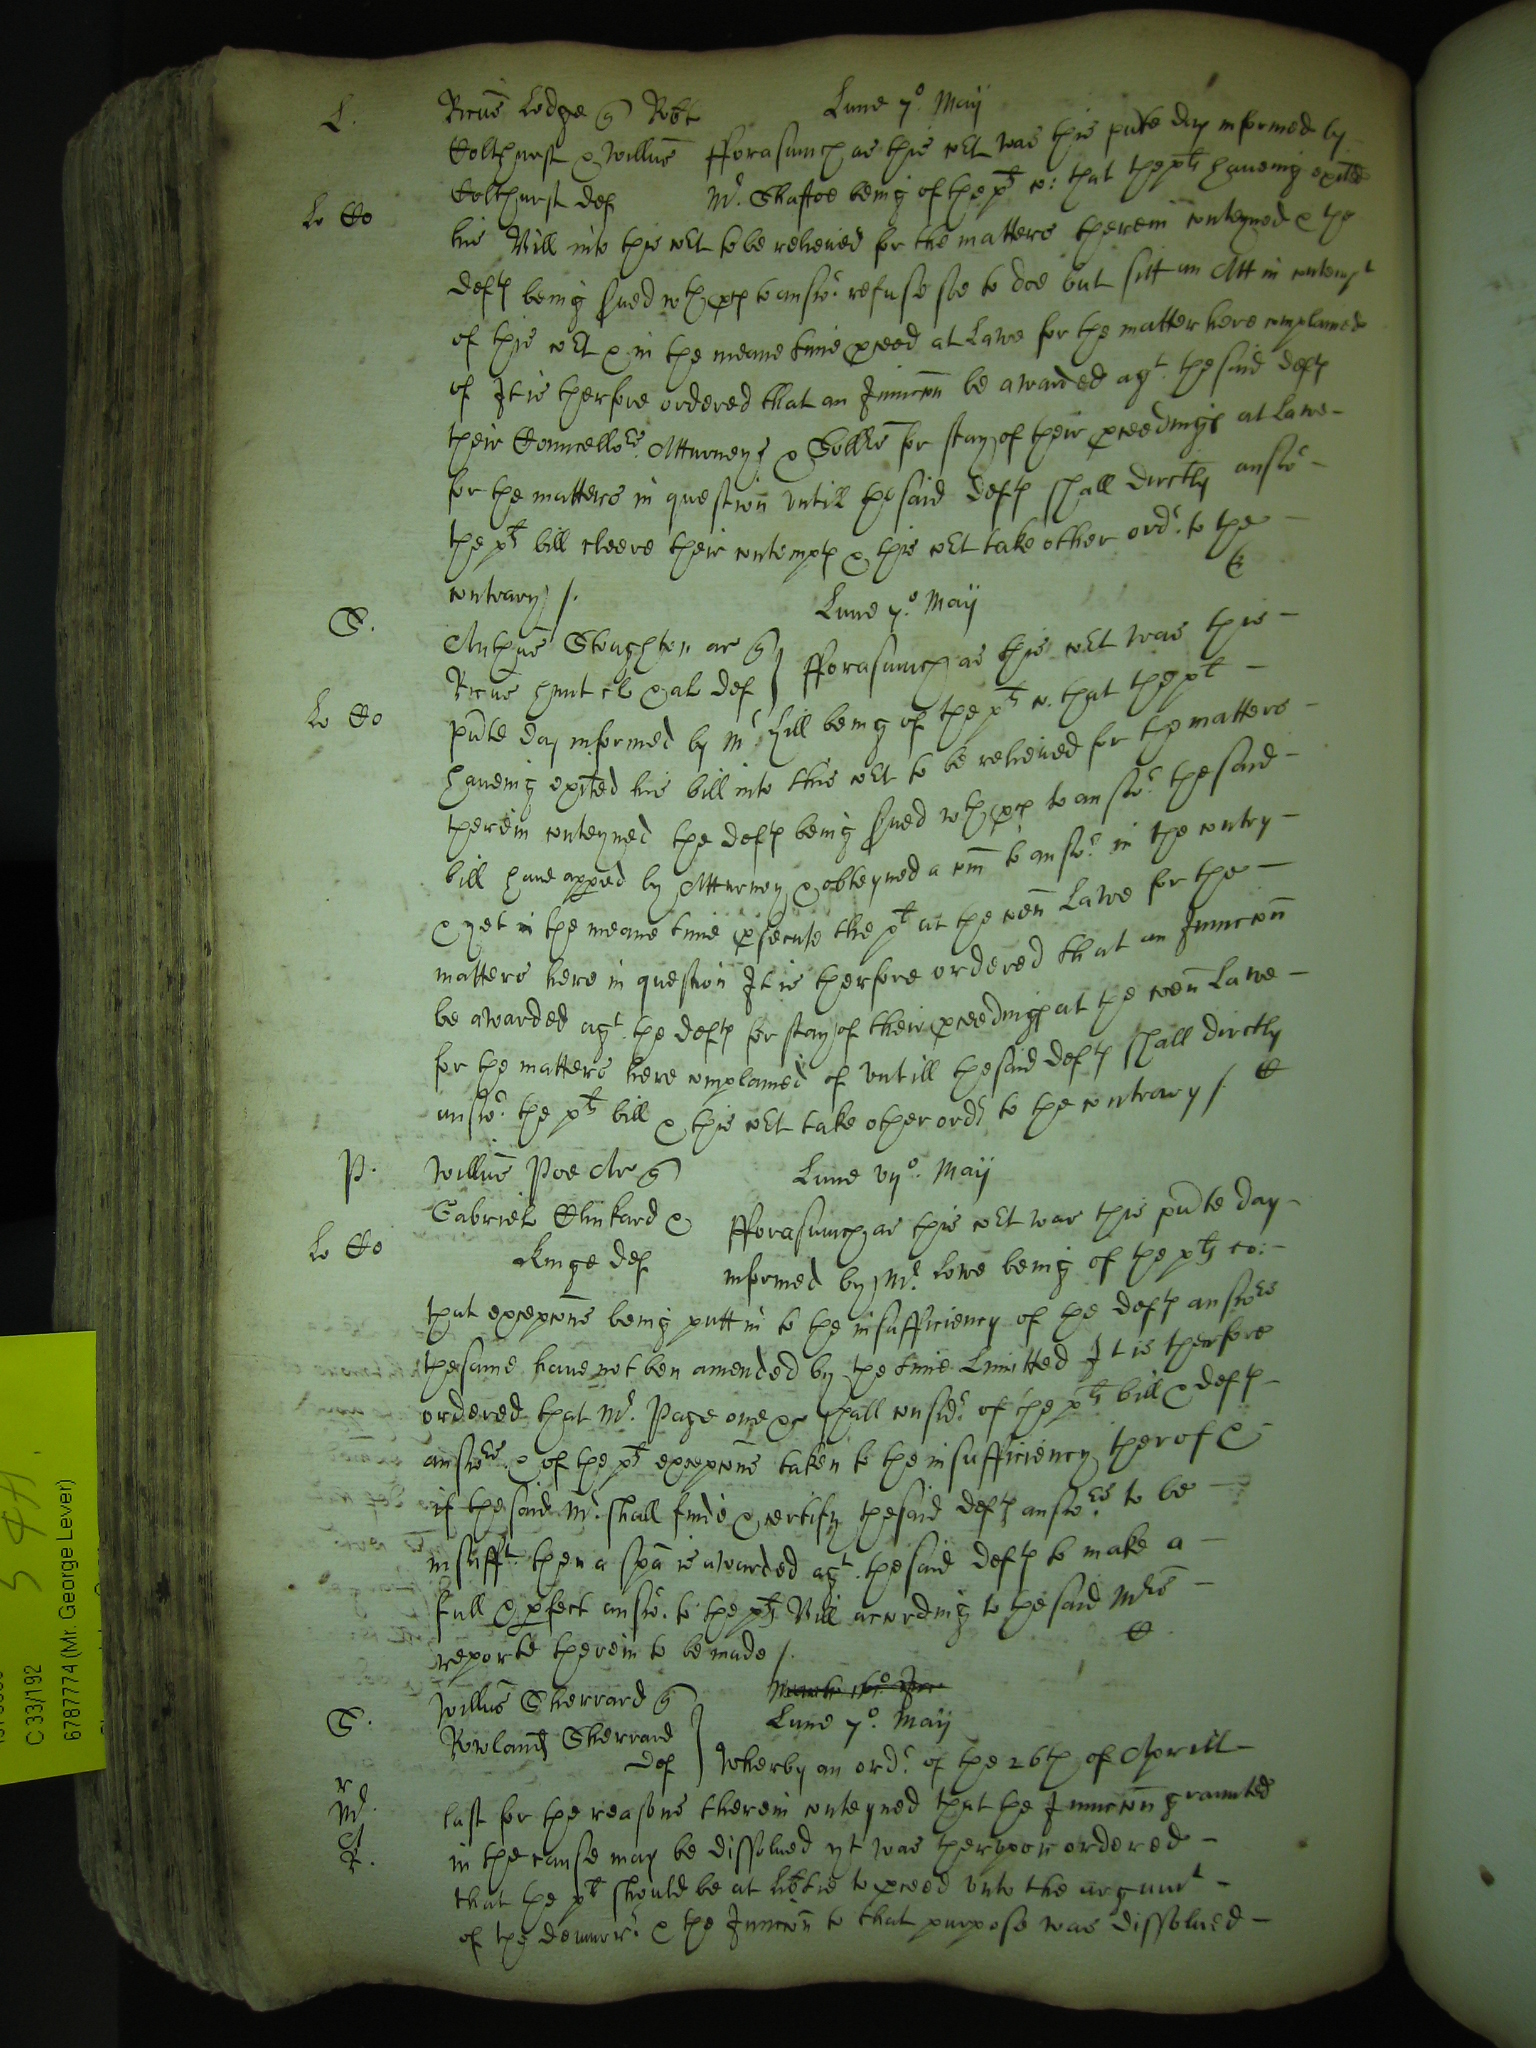 L.
Ricus Lodge q Robt
Lune 7o. Maij
Colthurst & Willus
fforasmuch as this cort was this pnte day informed by
Colthurst def
Mr. Shaftoe being of the pts co: that the pts haveing exited
Lo Co
his Bill into this cort to be releived for the matters therein conteyned & the
defts being served wth pces to answ. refuse soe to doe but sitt an Att in contempt
of this cort & in the meane time pceed at Lawe for the matter here complained
of It is therfore ordered that an Iniuccon be awarded agt. the said defts
their Councellors. Atturneys & Sollrs for stay of their pceedings at Lawe -
for the matters in question untill the said defts shall directly answr -
the pts bill cleere their contempts & this cort take other ordr. to the -
contrary /.
S.
Lune 7.o Maij
Anthus Stoughton ar q
fforasmuch as this cort was this -
Ricus Hunt cl & al def
Lo Co
pnte day informed by Mr Hill being of the pts co. that the pt -
haveing exited his bill into this cort to be releived for the matters -
therein conteyned the defts being served wth pces to answr. the said -
bill have apped by Atturney & obteyned a com to answr. in the contry -
& yet in the meane time psecute the pt at the coen Lawe for the -
matters here in question It is therfore ordered that an Iniuccon
be awarded agt. the defts for stay of their pceedings at the coen Lawe -
for the matters here complained of untill the said defts shall directly
answr. the pts bill & this cort take other ordr to the contrary /.
P.
Willus Poe Ar q
Lune vijo. Maij
Gabriel Clinkard &
fforasmuch as this cort was this pnte day -
Kinge def
Lo Co
informed by Mr. Lowe being of the pts co: -
that excepcons being putt in to the insufficiency of the defts answers
the same have not ben amended by the time Limitted It is therfore
ordered that Mr. Page one &c shall considr. of the pts bill & defts -
answers. & of the pts excepcons taken to the insufficiency therof &
if the said Mr. shall finde & certify the said defts answers. to be -
insufft. then a spa is awarded agt. the said defts to make a -
full & pfect answ. to the pts Bill according to the said Mrs -
reporte therein to be made /.
Willus Sherrard q
S.
Lune 7o. Maij
Rowland Sherrard
def
Wherby an ordr. of the 26th of Aprill -
last for the reasons therein conteyned that the Iniuccon graunted
in the cause may be dissolved yt was therupon ordered -
that the pt should be at libtie to pceed unto the argumt -
of the demurr. & the Iniuccon to that purpose was dissolved -
C 33/192
6787774 (Mr. George Lever)